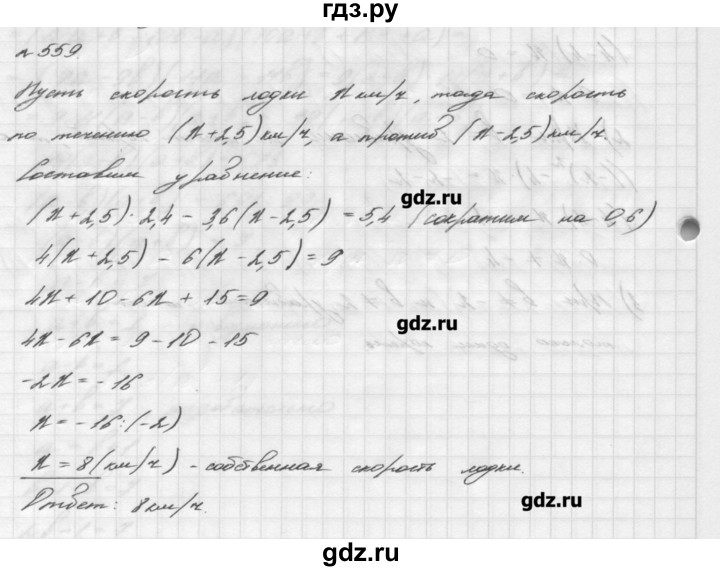 гдз.ру
№559.
Пусть скорость лодки x км/ч, тогда скорость
по течению (x+2,5) км/ч, а против (x-2,5) км/ч.
Составим уравнение:
(x+2,5)·2,4 - 3,6(x-2,5) = 5,4 (сократим на 0,6)
gdz.ru
4(x+2,5) - 6(x-2,5) = 9
4x+10-6x+15=9
gdz.ru
4x-6x=9-10-15
-2x=-16
x=-16:(-2)
x=8(км/ч) - собственная скорость лодки.
Ответ: 8 км/ч.
gdz.ru
gdz.ru